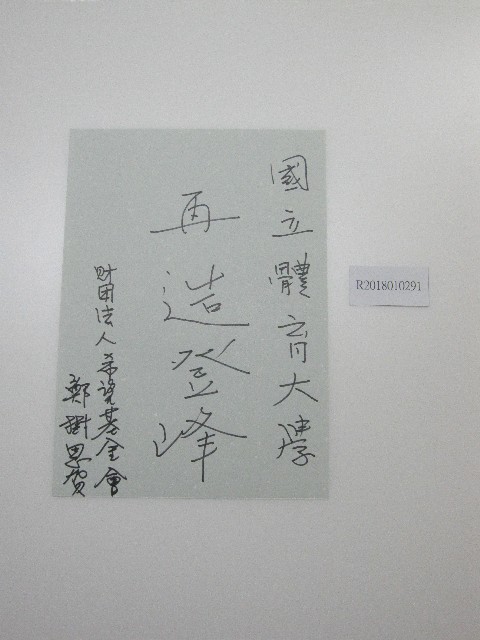 國立體育大學
再造登峰
財團法人希望基金會
鄭樹恩賀
R2018010291